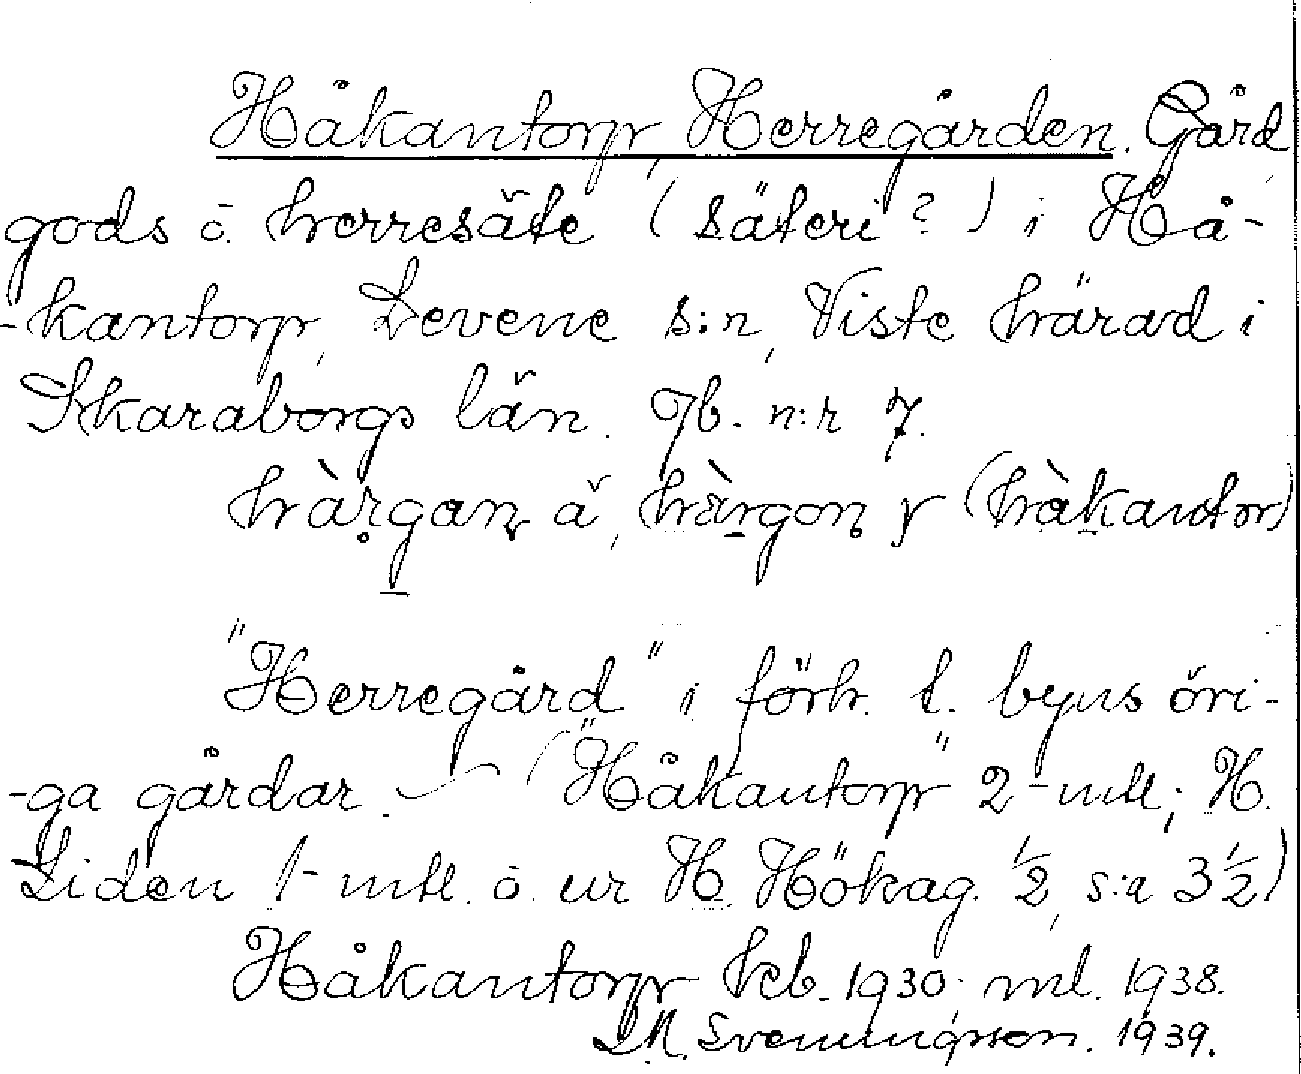 Håkantorp, Herregården. Gård,
gods o. herresäte (säteri?) i Hå-
-kantorp, Levene s:n, Viste härad i
Skaraborgs län. Jb. n:r 7.
hàrgaṇ å, hàrgoṇ y (hàkantor)
"Herregård" i förh. t. byns övri-
-ga gårdar. — ("Håkantorp" 2-mtl; H.
Liden 1-mtl. o. ur H. Hökag. 1/2, s:a 3 1/2)
Håkantorp feb. 1930; ml. 1938.
Svenningsson. 1939.